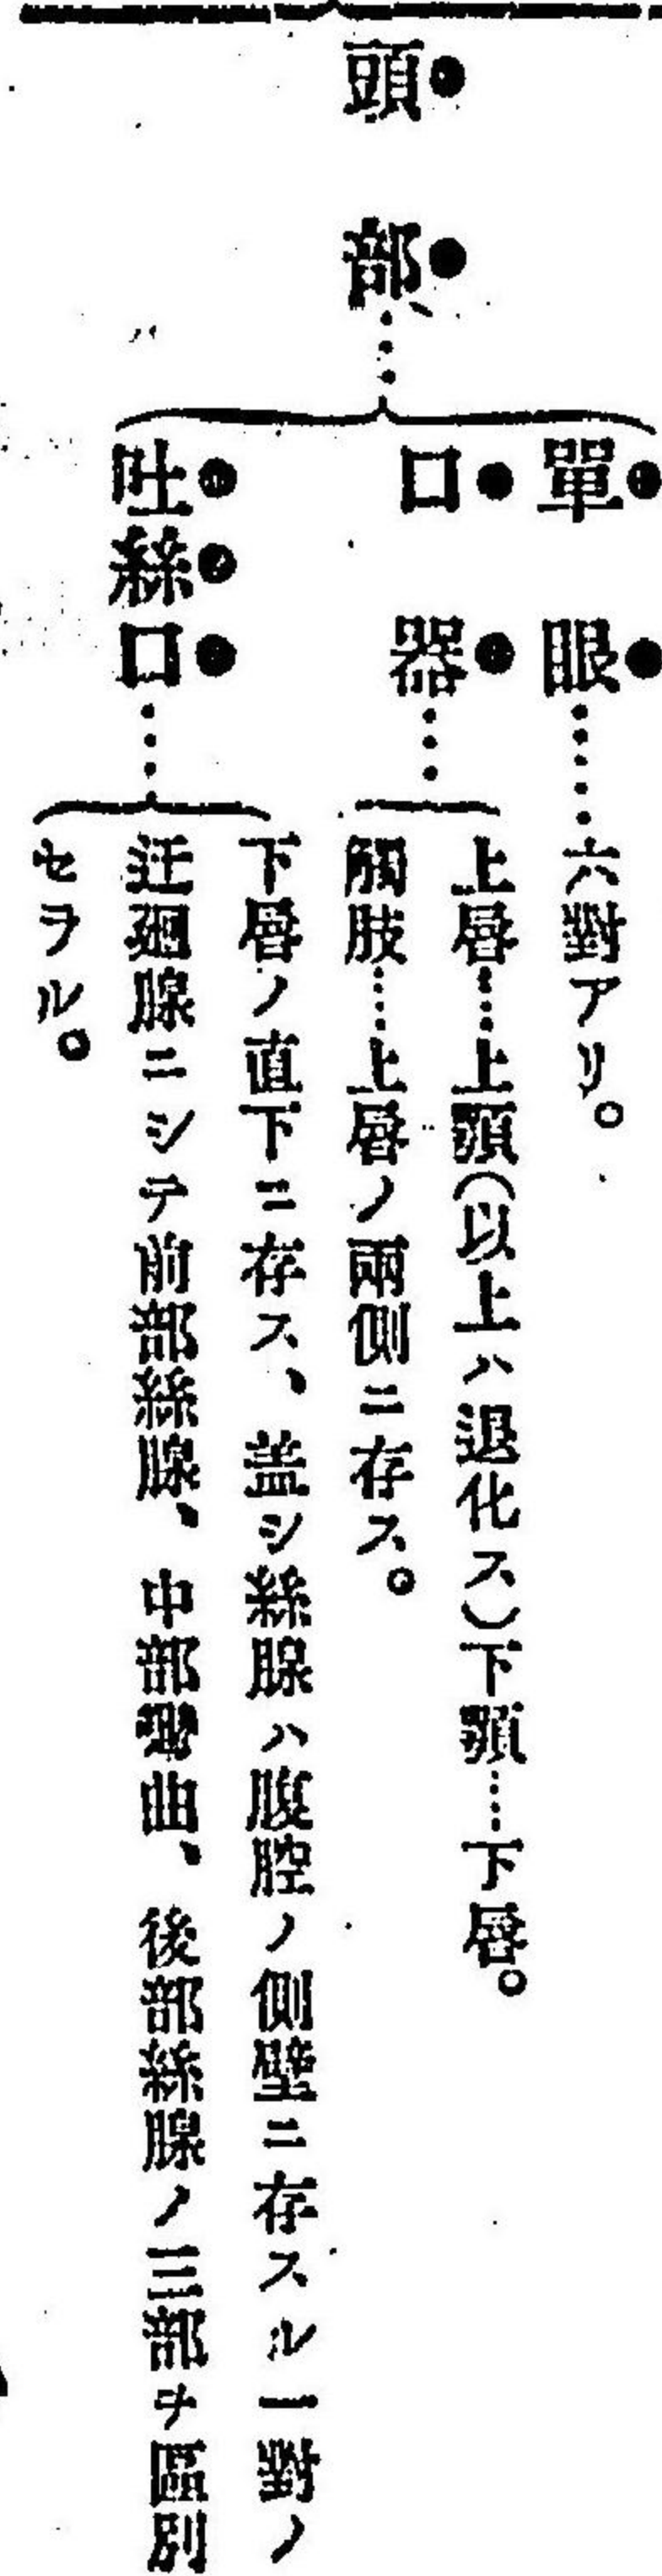 頭部、……
單眼……六對アリ。
口器……
上唇……上顎(以上ハ退化ス)下顎……下唇。
觸肢……上唇ノ兩側ニ存ス。
吐絲口……
下唇ノ直下ニ存ス、蓋シ絲腺ハ腹腔ノ側壁ニ存スル一對ノ
迂廻腺ニシテ前部絲腺、中部彎曲、後部絲腺ノ三部ヲ區別
セラル。